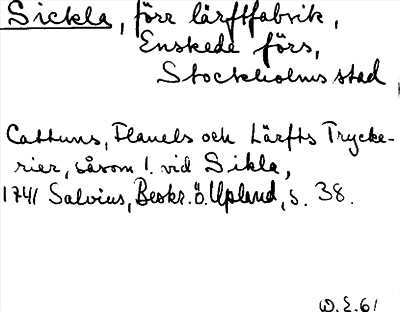 Sickla, förr lärftfabrik,
Enskede förs,
Stockholms stad
Cattuns, Flanels och Lärfts Trycke-
rier, såsom 1. vid Sikla,
1741 Salvius, Beskr. ö. Upland, s. 38.
W.E.61